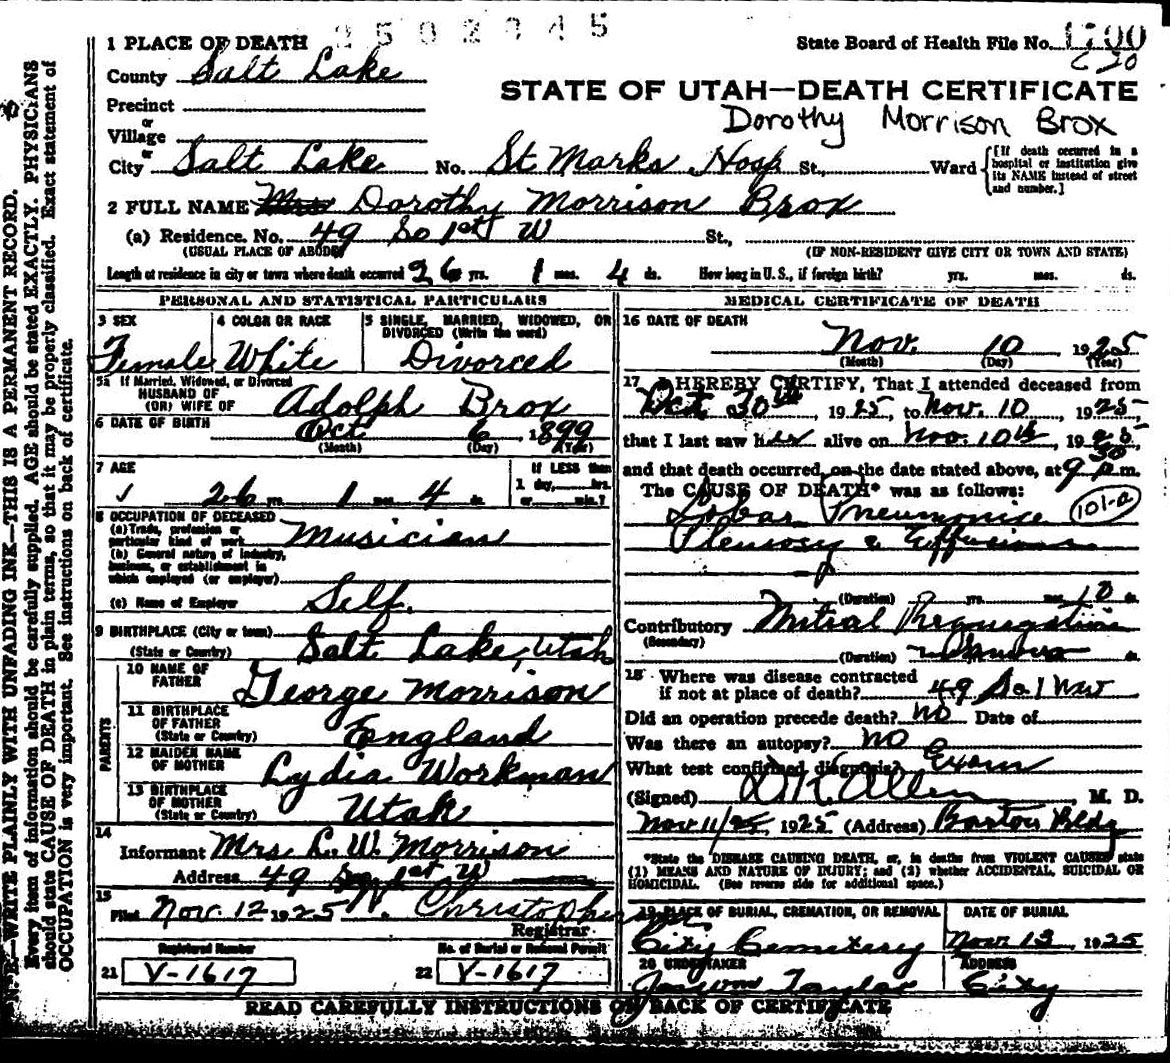 2502345
1 PLACE OF DEATH
State Board of Health File No. 1700
C 20
County Salt Lake
STATE OF UTAH—DEATH CERTIFICATE
Precinct
or
Village
Dorothy Morrison Brox
or
City Salt Lake No. St Marks Hosp St., Ward
[If death occurred in a hospital or institution give its NAME instead of street and number.]
2 FULL NAME Mrs Dorothy Morrison Brox
(a) Residence. No. 49 So 1st W St.,
(USUAL PLACE OF ABODE) (IF NON-RESIDENT GIVE CITY OR TOWN AND STATE)
Length of residence in city or town where death occurred 26 yrs. 1 mos. 4 ds. How long in U. S., if foreign birth? yrs. mos. ds.
PERSONAL AND STATISTICAL PARTICULARS
3 SEX 4 COLOR OR RACE 5 SINGLE, MARRIED, WIDOWED, OR DIVORCED (Write the word)
Female White Divorced
5a If Married, Widowed, or Divorced
HUSBAND OF
(OR) WIFE OF Adolph Brox
6 DATE OF BIRTH Oct 6 1899
(Month) (Day) (Year)
7 AGE If LESS than
1 day, hrs.
26 yrs. 1 mos. 4 ds. or min.?
8 OCCUPATION OF DECEASED
(a) Trade, profession or particular kind of work Musician
(b) General nature of industry, business, or establishment in which employed (or employer)
(c) Name of Employer Self.
9 BIRTHPLACE (City or town)
(State or Country) Salt Lake, Utah
PARENTS
10 NAME OF FATHER George Morrison
11 BIRTHPLACE OF FATHER (State or Country) England
12 MAIDEN NAME OF MOTHER Lydia Workman
13 BIRTHPLACE OF MOTHER (State or Country) Utah
14
Informant Mrs L. W. Morrison
Address 49 So 1st W
15
Filed Nov. 12 1925 N. Christopherson
Registrar
Registered Number No. of Burial or Removal Permit
21 V-1617 22 V-1617
MEDICAL CERTIFICATE OF DEATH
16 DATE OF DEATH
Nov. 10 1925
(Month) (Day) (Year)
17 I HEREBY CERTIFY, That I attended deceased from
Oct 30th, 1925, to Nov. 10, 1925
that I last saw her alive on Nov. 10th, 1925
and that death occurred, on the date stated above, at 9 30 p.m.
The CAUSE OF DEATH* was as follows:
Lobar Pneumonia 101-a
Pleurosy & Effusion
(Duration) yrs. mos. 10 ds.
Contributory Mitral Regurgitation
(Secondary)
(Duration) ds.
18 Where was disease contracted
if not at place of death? 49 So 1 W
Did an operation precede death? No Date of
Was there an autopsy? No
What test confirmed diagnosis? Exam
(Signed) D. K. Allen M. D.
Nov 11/25, 1925 (Address) Boston Bldg
*State the DISEASE CAUSING DEATH, or, in deaths from VIOLENT CAUSES state
(1) MEANS AND NATURE OF INJURY; and (2) whether ACCIDENTAL, SUICIDAL OR
HOMICIDAL. (See reverse side for additional space.)
19 PLACE OF BURIAL, CREMATION, OR REMOVAL DATE OF BURIAL
City Cemetery Nov 13, 1925
20 UNDERTAKER ADDRESS
Jos Wm Taylor City
READ CAREFULLY INSTRUCTIONS ON BACK OF CERTIFICATE
N. B.—WRITE PLAINLY WITH UNFADING INK—THIS IS A PERMANENT RECORD.
Every item of information should be carefully supplied. AGE should be stated EXACTLY. PHYSICIANS
should state CAUSE OF DEATH in plain terms, so that it may be properly classified. Exact statement of
OCCUPATION is very important. See instructions on back of certificate.